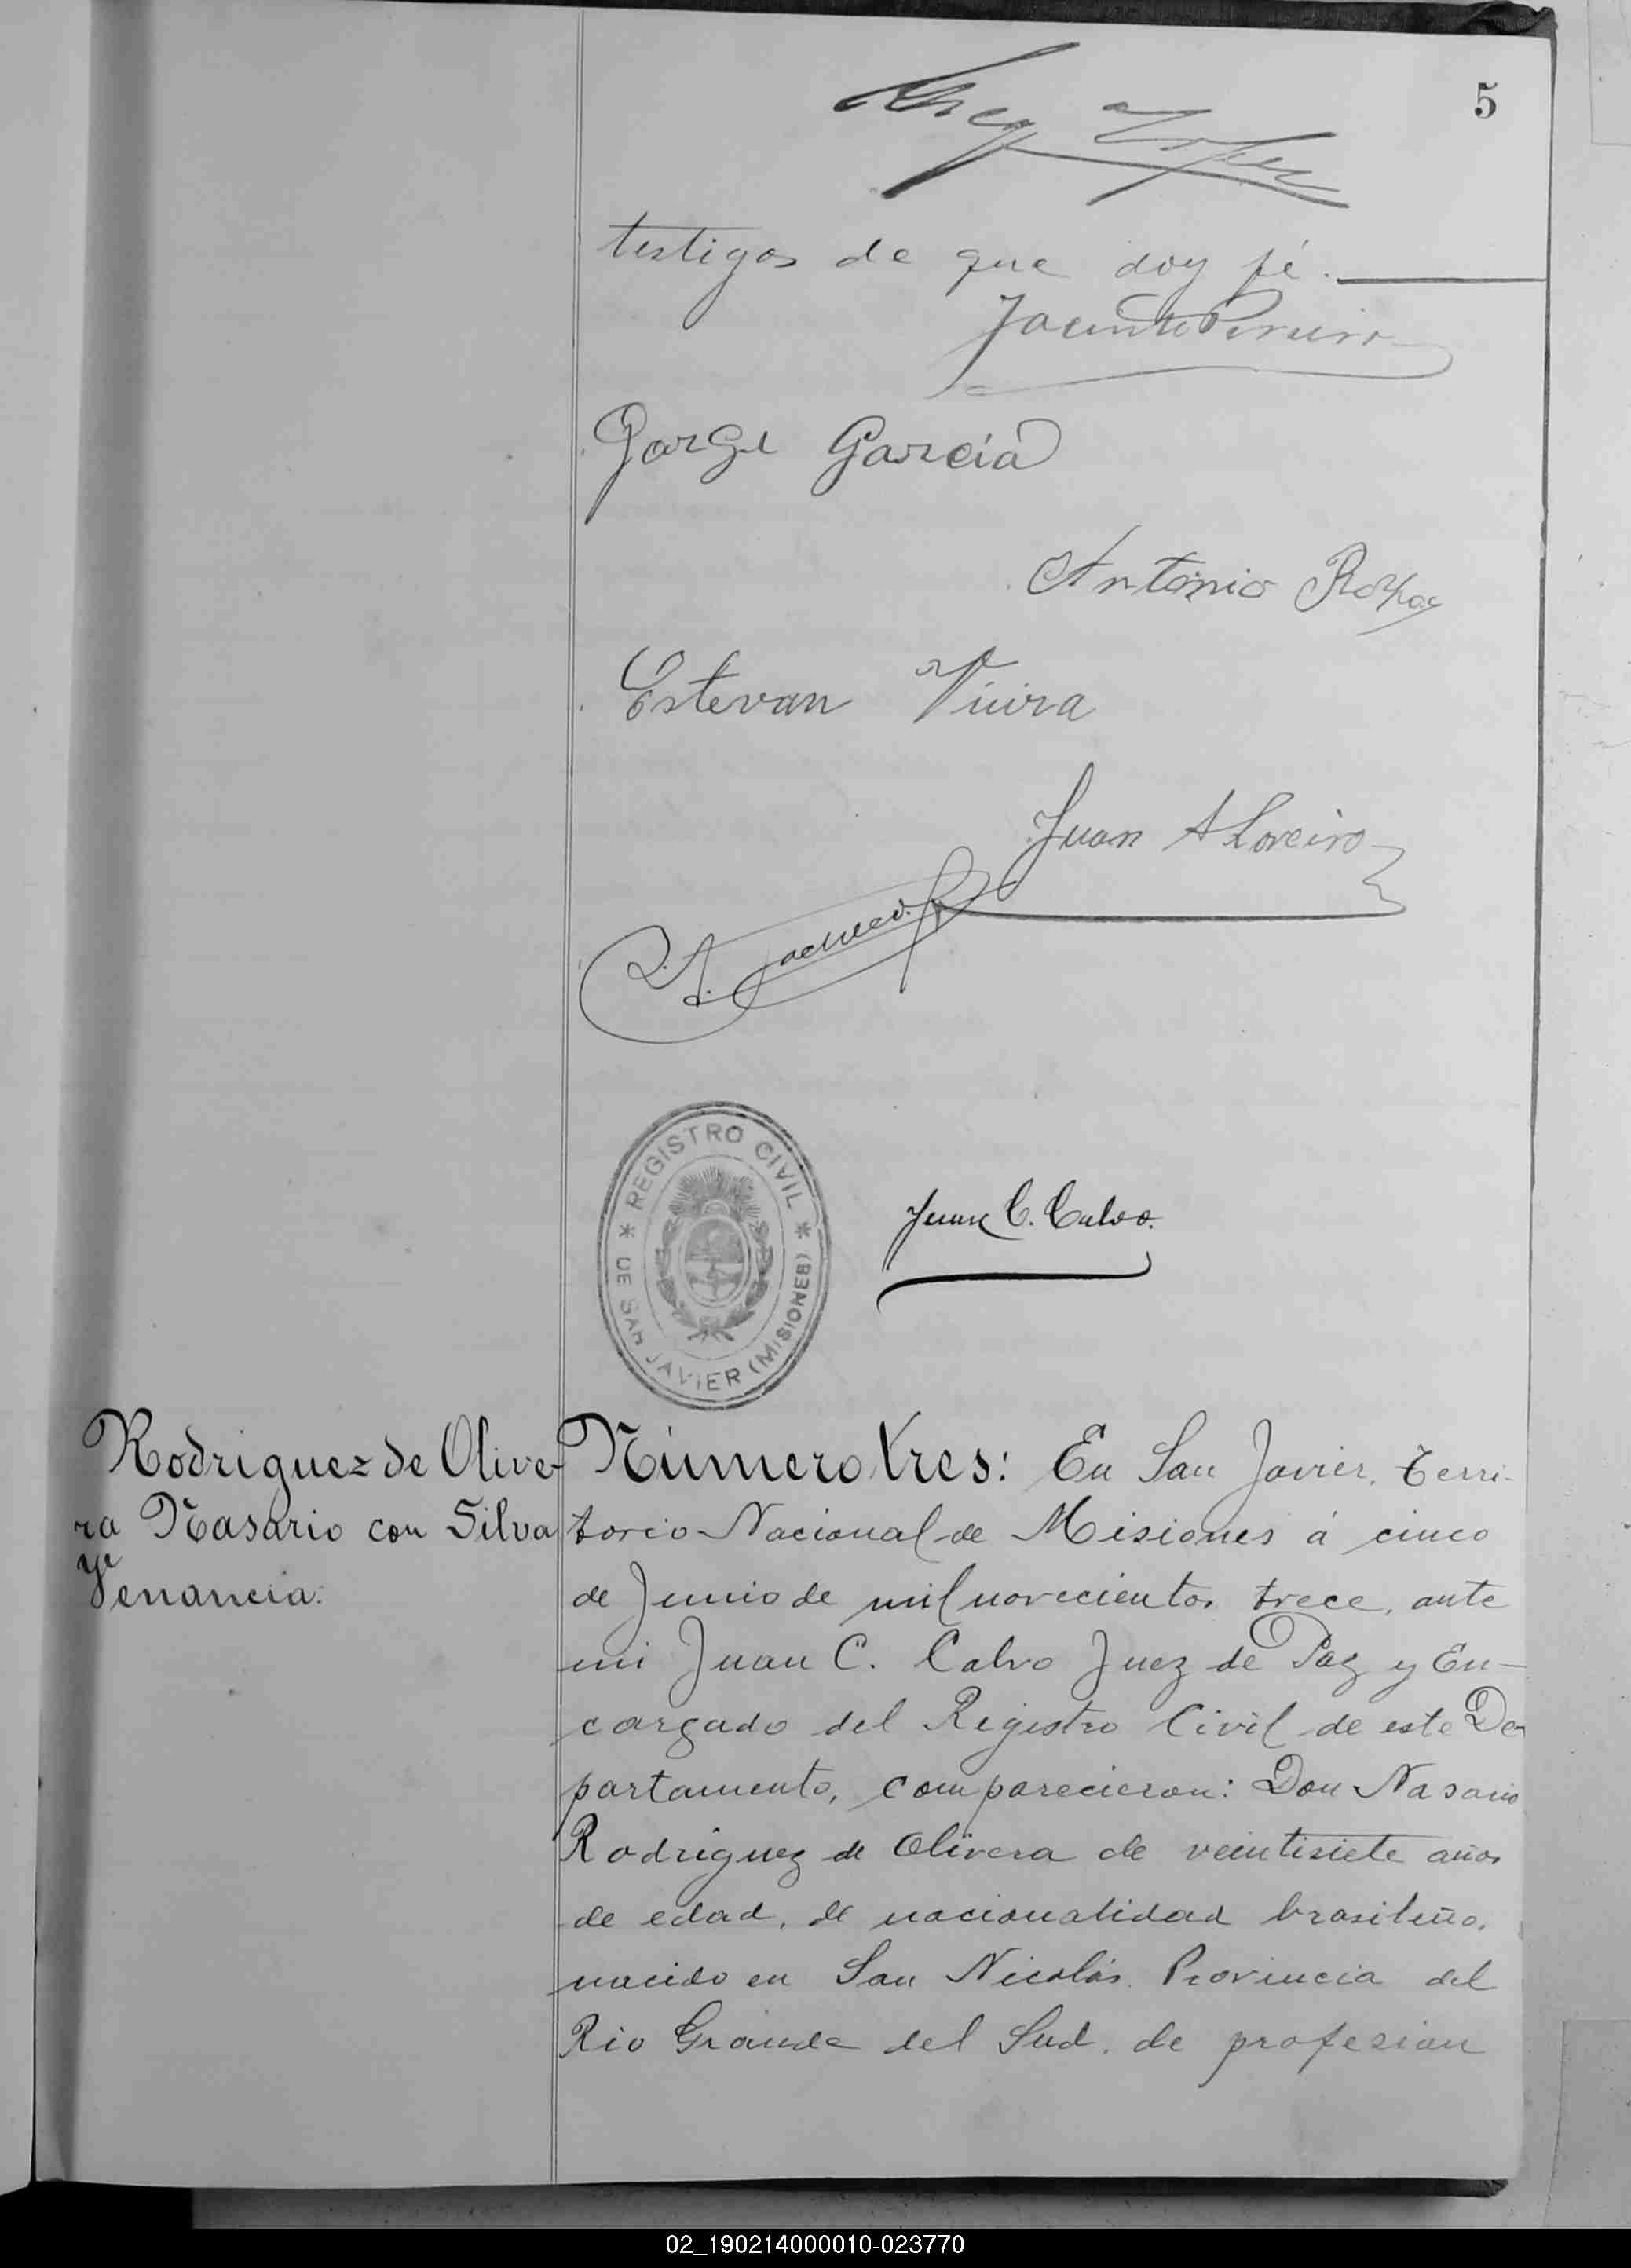 5
testigos de que doy fé.
Jacinto Pereira
Jorge García
Antonio
Estevan Viüra
Juan A Loreiro
REGISTRO CIVIL
DE SAN JAVIER (MISIONES)
Juan C. Calvo.
Rodriguez de Olive-
ra Nasario con Silva
Venancia.
Número tres: En San Javier, Terri-
torio Nacional de Misiones á cinco
de Junio de mil novecientos trece, ante
mi Juan C. Calvo Juez de Paz y En-
cargado del Registro Civil de este De
partamento, comparecieron: Don Nasario
Rodriguez de Olivera de veintisiete años
de edad, de nacionalidad brasileño,
nacido en San Nicolás Provincia del
Rio Grande del Sud, de profesian
02_190214000010-023770